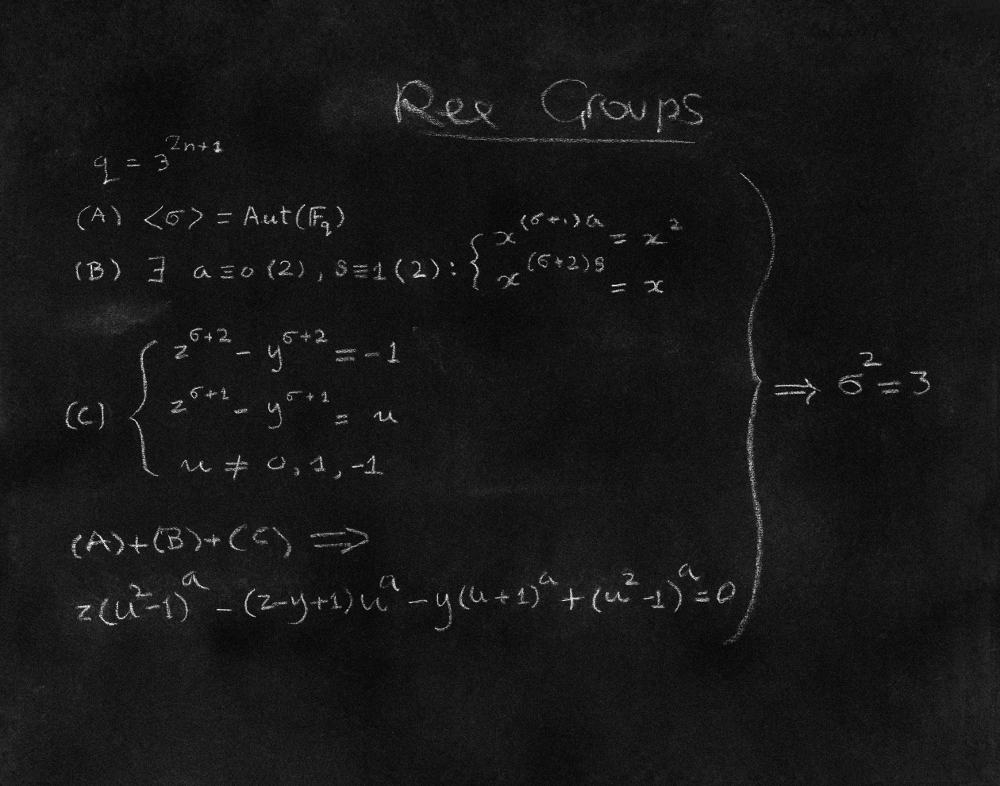 Ree Groups
q = 3^{2n+1}
(A) <σ> = Aut(𝔽_q)
(B) ∃ a≡0 (2), s≡1 (2): { x^{(σ+1)a} = x^2
x^{(σ+2)s} = x
(C) { z^{σ+2} - y^{σ+2} = -1
z^{σ+1} - y^{σ+1} = u
u ≠ 0, 1, -1
} ⇒ σ^2 = 3
(A)+(B)+(C) ⇒
z(u^2-1)^a - (z-y+1)u^a - y(u+1)^a + (u^2-1)^a = 0